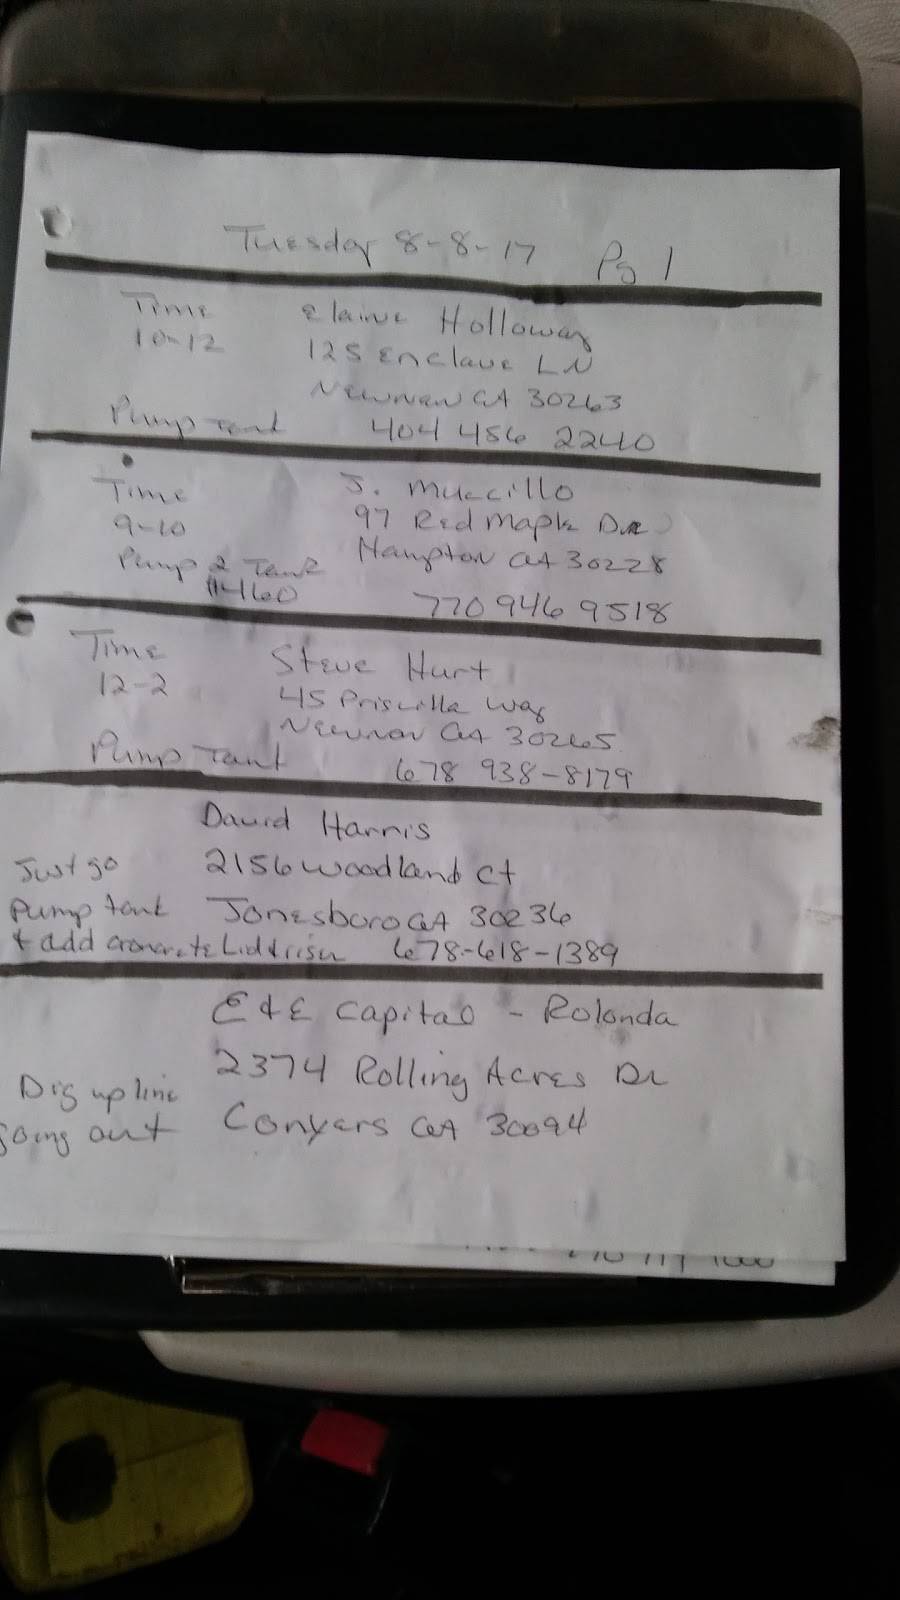 Tuesday 8-8-17 Pg 1
Time Elaine Holloway
10-12 125 Enclave LN
Newnan GA 30263
Pump Tank 404 456 2240
Time J. Muccillo
9-10 97 Red Maple Dr
Pump 2 Tank Hampton GA 30228
460 770 946 9518
Time Steve Hurt
12-2 45 Priscilla Way
Newnan GA 30265
Pump Tank 678 938-8179
David Harris
Just go 2156 Woodland Ct
Pump tank Jonesboro GA 30236
+ add concrete Lid & riser 678-618-1389
E & E Capital - Rolonda
2374 Rolling Acres Dr
Dig up line
going out Conyers GA 30094